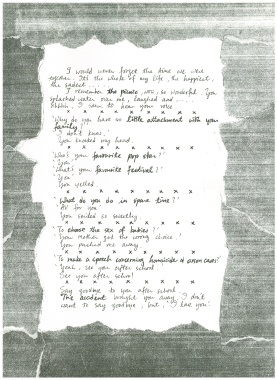 I would never forget the time we were
together. It's the whole of my life, the happiest,
the saddest ...
I remember the picnic, wow, so wonderful. You
splashed water over me, laughed and ...
Ahhhh, I seem to hear your voice.
x x x x x x x x
'Why do you have so little attachment with your
family?'
'I don't know.'
You nodded my hand.
x x x x x x x x
'Who's your favourite pop star?'
'You.'
'What's your favourite festival?'
'You.'
You yelled.
x x x x x x x x
'What do you do in spare time?'
'All for you.'
You smiled so sweetly.
x x x x x x x x
'To choose the sex of babies?'
'You mother got the wrong choice.'
You pushed me away.
x x x x x x x x
'To make a speech concerning homicide & arson cases?'
'Yeah, see you after school.'
'See you after school.'
x x x x x x x x
Say goodbye to you after school.
The accident brought you away. I don't
want to say goodbye, but, 'I love you'.